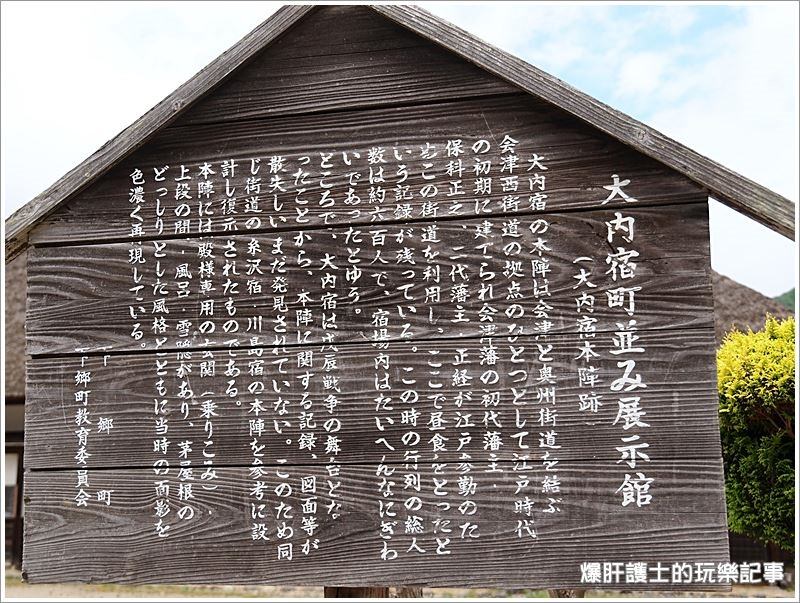 大内宿町並み展示館
(大内宿本陣跡)
大内宿の本陣は会津と奥州街道を結ぶ
会津西街道の拠点のひとつとして江戸時代
の初期に建てられ会津藩の初代藩主・
保科正之、二代藩主・正経が江戸参勤のた
めこの街道を利用し、ここで昼食をとったと
いう記録が残っている。この時の行列の総人
数は約六百人で、宿場内はたいへんなにぎわ
いであったとゆう。
ところで、大内宿は戊辰戦争の舞台とな
ったことから、本陣に関する記録、図面等が
散失しいまだ発見されていない。このため同
じ街道の糸沢宿・川島宿の本陣を参考に設
計し復元されたものである。
本陣には殿様専用の玄関(乗りこみ)・
上段の間・風呂・雪隠があり、茅屋根の
どっしりとした風格とともに当時の面影を
色濃く再現している。
下郷町
下郷町教育委員会
爆肝護士的玩樂記事